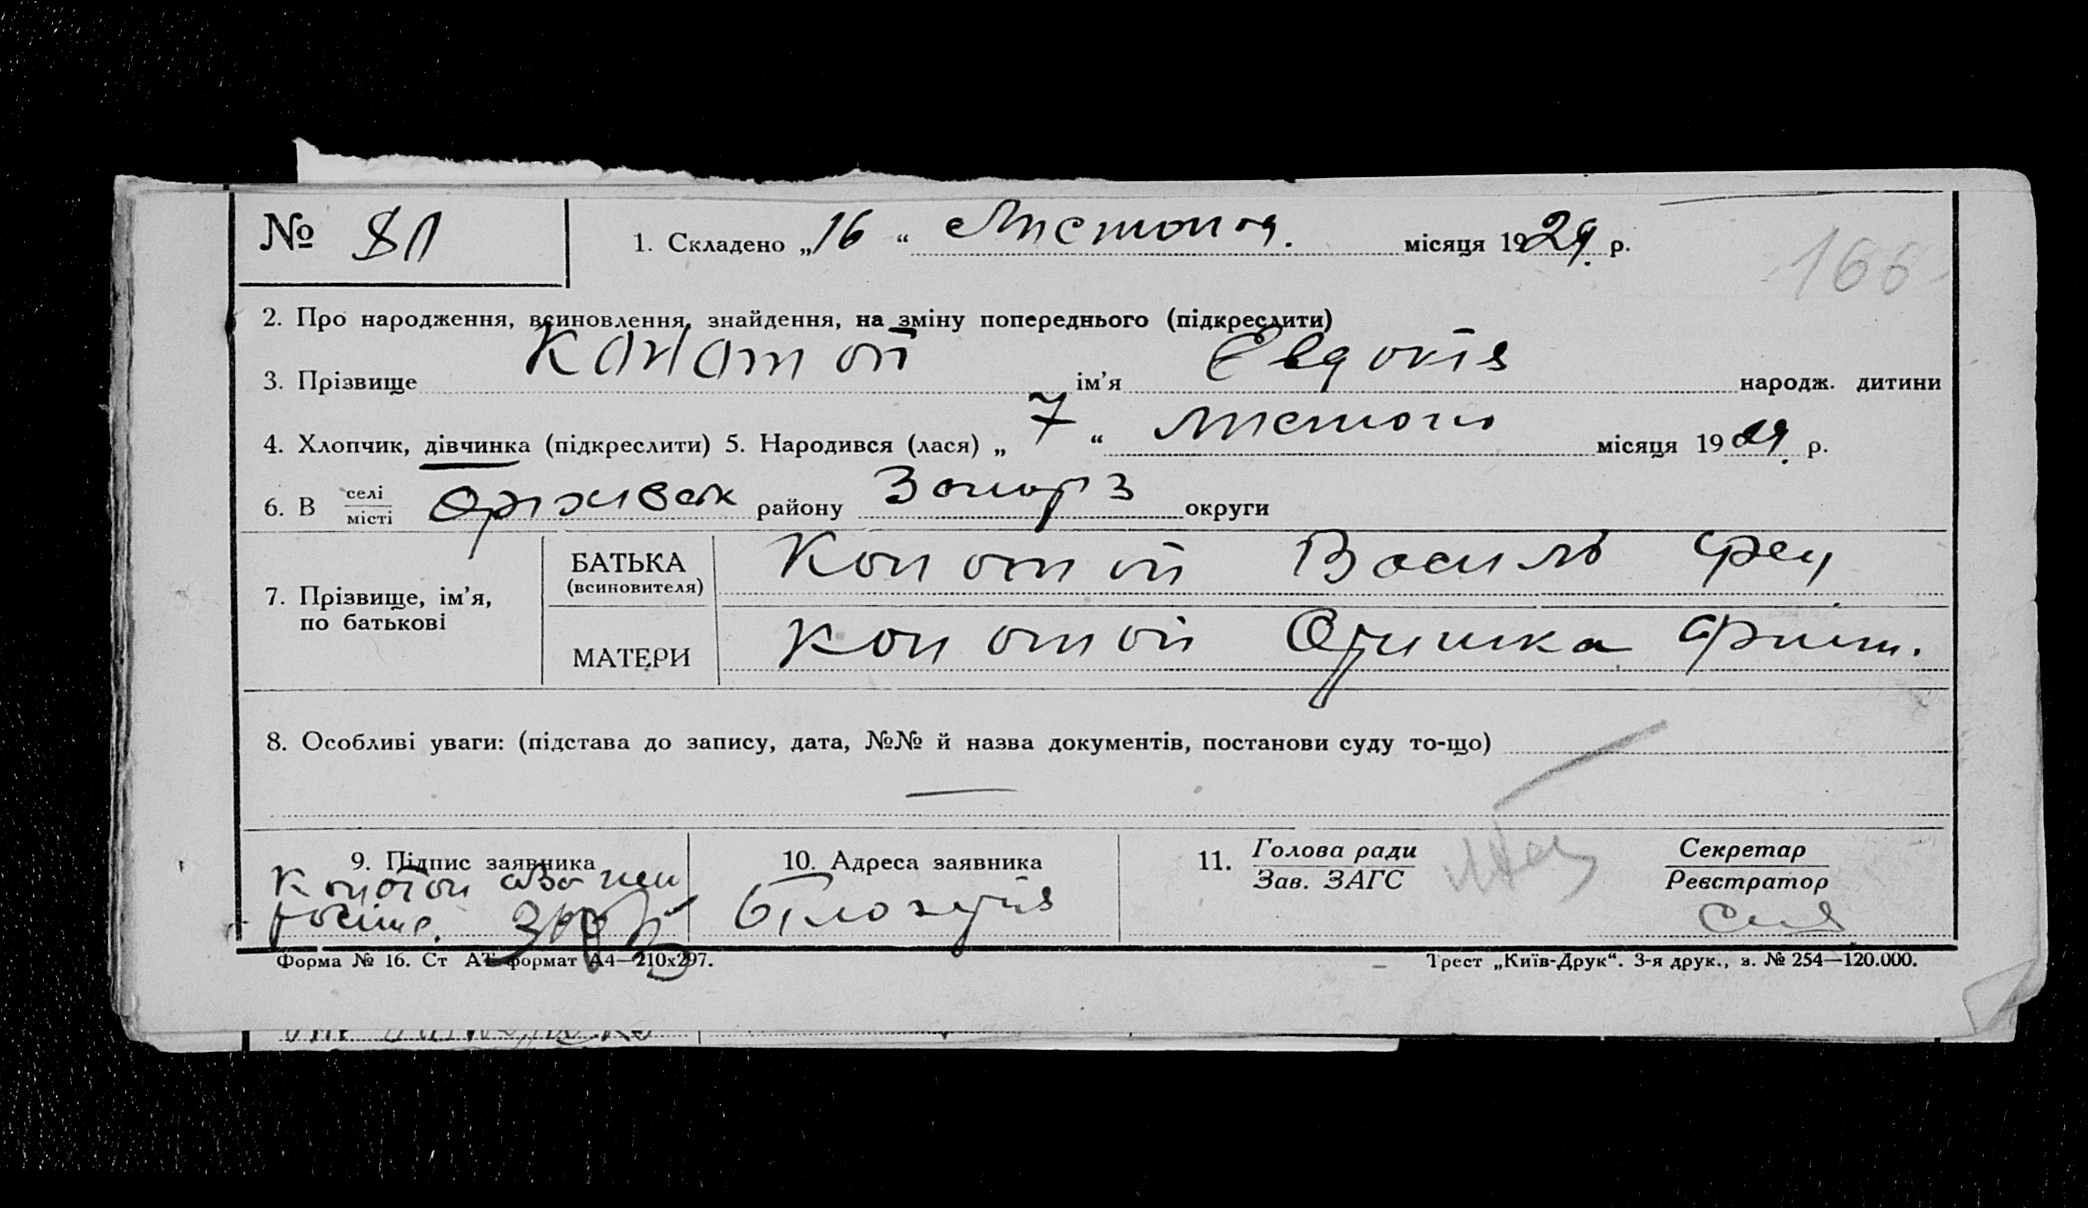 № 81
1. Складено „16“ Листопад. місяця 1929 р.
166
2. Про народження, всиновлення, знайдення, на зміну попереднього (підкреслити)
3. Прізвище Конотоп ім’я Евдокія народж. дитини
4. Хлопчик, дівчинка (підкреслити) 5. Народився (лася) „7“ Листопад місяця 1929 р.
6. В селі місті району Запоріз округи
7. Прізвище, ім’я, по батькові
БАТЬКА (всиновителя) Конотоп Василь Фед.
МАТЕРИ Конотоп Оришка Фили.
8. Особливі уваги: (підстава до запису, дата, №№ й назва документів, постанови суду то-що)
9. Підпис заявника
Конотоп
10. Адреса заявника
11. Голова ради
Зав. ЗАГС
Секретар
Реєстратор
Форма № 16. Ст АТ формат А4—210x297.
Трест „Київ-Друк“. 3-я друк., з. № 254—120.000.